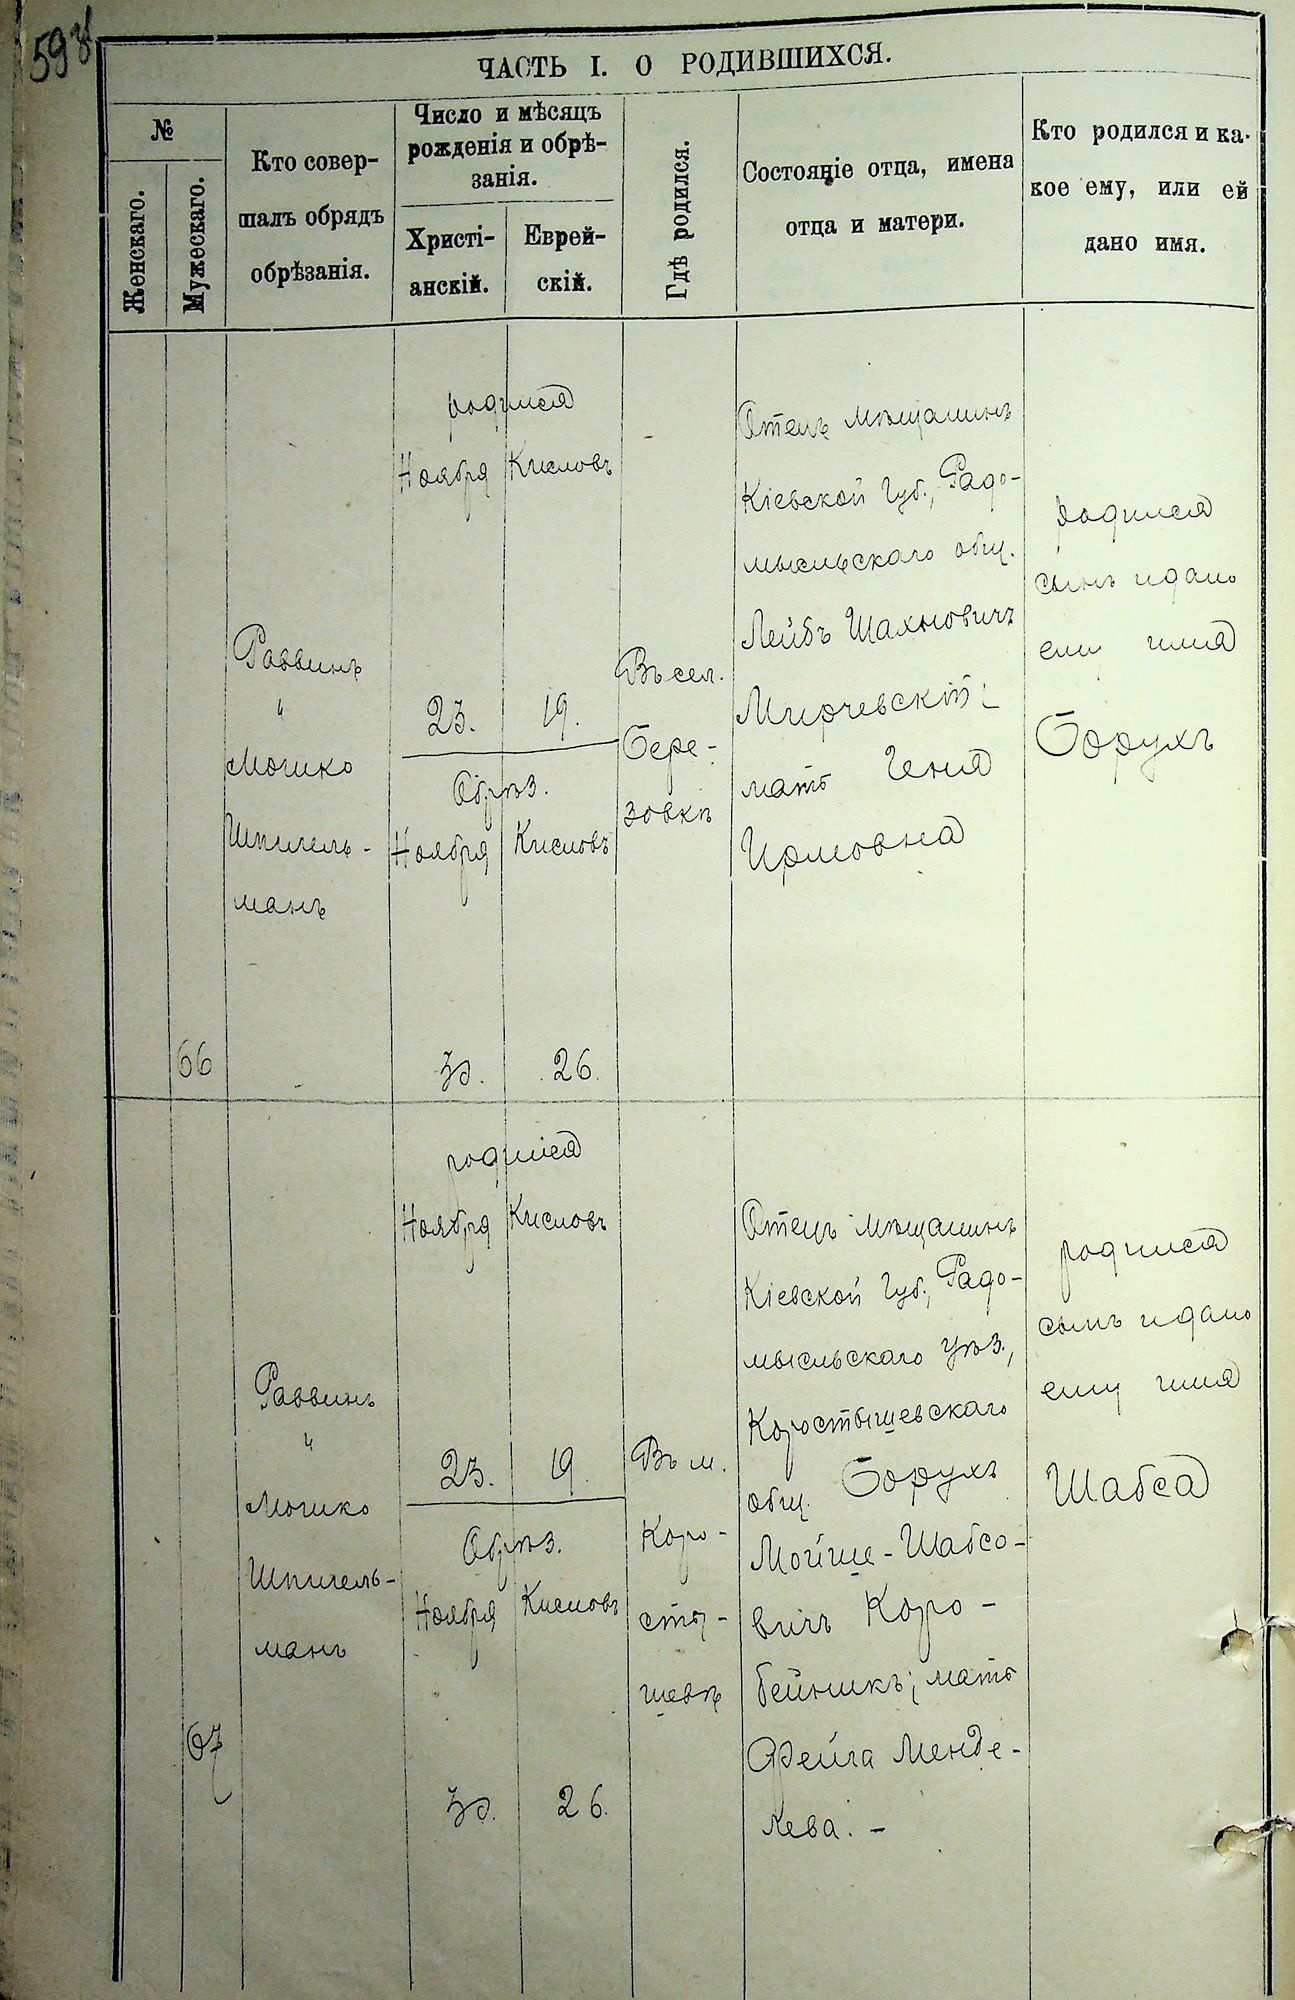 593
ЧАСТЬ I. О РОДИВШИХСЯ.
№
Женскаго.
Мужескаго.
Кто совер-
шалъ обрядъ
обрѣзанія.
Число и мѣсяцъ
рожденія и обрѣ-
занія.
Христі-
анскій.
Еврей-
скій.
Гдѣ родился.
Состояніе отца, имена
отца и матери.
Кто родился и ка-
кое ему, или ей
дано имя.
66
Раввинъ
"
Мошко
Шпигель-
манъ
родился
Ноября Кислевъ
23. 19.
Обрѣз.
Ноября Кислевъ
30. 26.
Въ сел.
Бере-
зовкѣ
Отецъ мѣщанинъ
Кіевской Губ., Радо-
мысльскаго общ.
Лейбъ Шахновичъ
Мирчевскій;
мать Геня
Ирмовна
родился
сынъ и дано
ему имя
Борухъ
67
Раввинъ
"
Мошко
Шпигель-
манъ
родился
Ноября Кислевъ
23. 19.
Обрѣз.
Ноября Кислевъ
30. 26.
Въ м.
Коро-
сты-
шевѣ
Отецъ мѣщанинъ
Кіевской Губ., Радо-
мысльскаго уѣз.,
Коростышевскаго
общ. Борухъ
Мойше-Шабсо-
вичъ Коро-
бейникъ; мать
Фейга Менде-
лева. -
родился
сынъ и дано
ему имя
Шабса